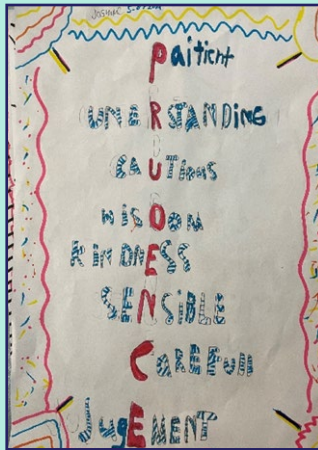 Paitient
UNDERSTANDING
CAUTIOUS
WISDOM
KINDNESS
SENSIBLE
CAREFUll
JugEMENT